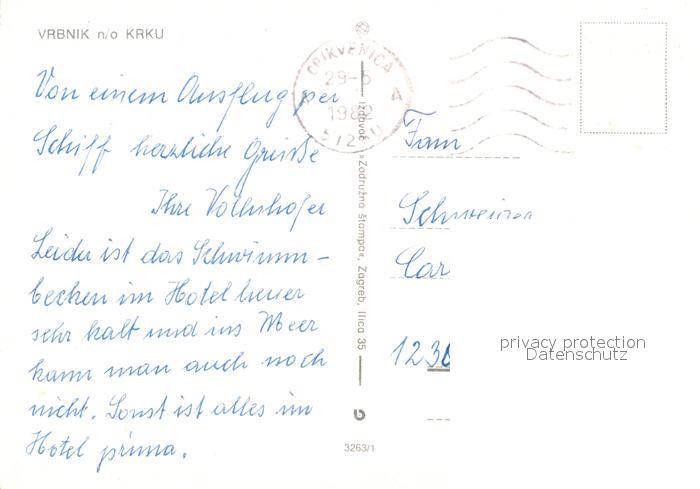 VRBNIK n/o KRKU
Von einem Ausflug per
Schiff herzliche Grüsse
Ihre
Leider ist das Schwimm-
becken im Hotel heuer
sehr kalt und ins Meer
kann man auch noch
nicht. Sonst ist alles im
Hotel prima.
CRIKVENICA
29-5
1982
A
51260
Izdavač »Zadružna štampa«, Zagreb, Ilica 35
3263/1
Fam
Car
1230
privacy protection
Datenschutz